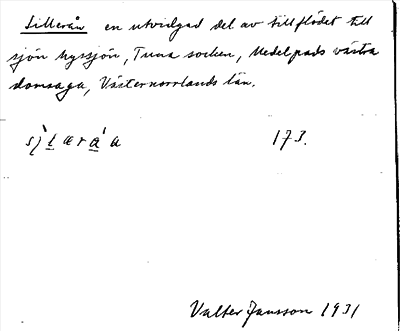 Sillerån en utvidgad del av tillflödet till
sjön Nyssjön, Tuna socken, Medelpads västra
domsaga, Västernorrlands län.
173.
Valter Jansson 1931